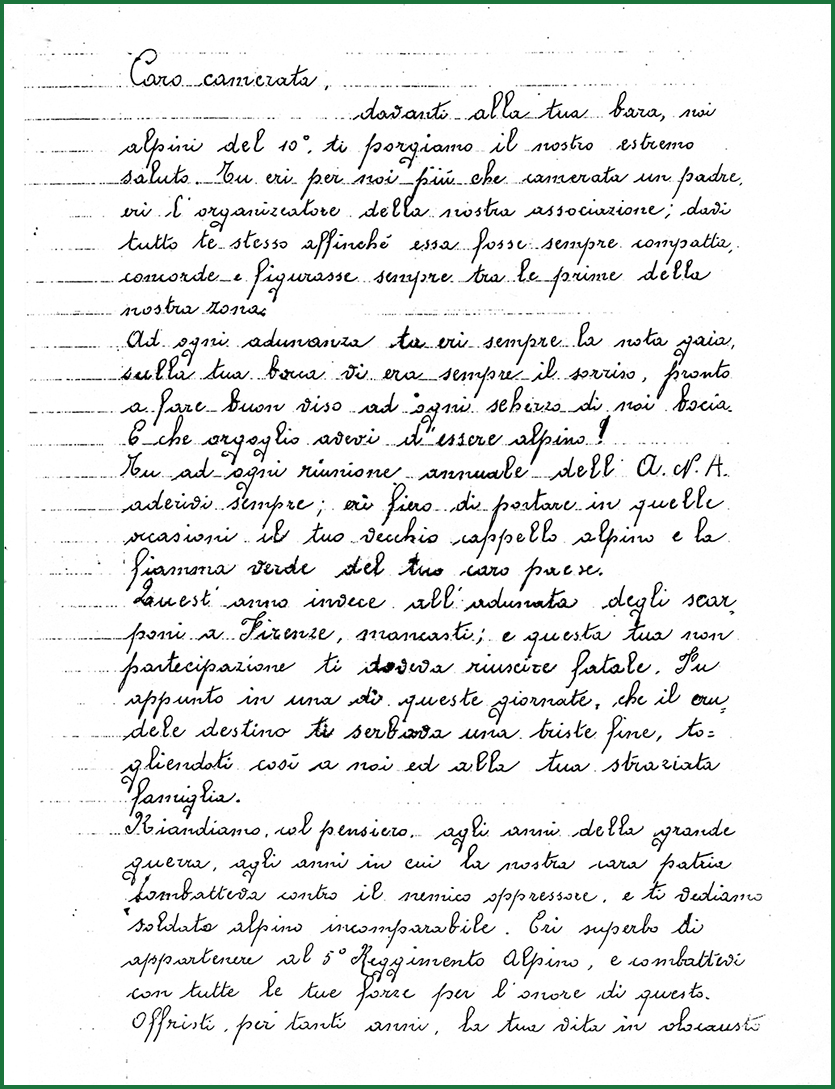 Caro camerata,
davanti alla tua bara, noi
alpini del 10°, ti porgiamo il nostro estremo
saluto. Tu eri per noi piú che camerata un padre,
eri l'organizzatore della nostra associazione; davi
tutto te stesso affinché essa fosse sempre compatta,
concorde e figurasse sempre tra le prime della
nostra zona.
Ad ogni adunanza tu eri sempre la nota gaia,
sulla tua bocca vi era sempre il sorriso, pronto
a fare buon viso ad ogni scherzo di noi bocia.
E che orgoglio avevi d'essere alpino!
Tu ad ogni riunione annuale dell' A.N.A.
aderivi sempre; eri fiero di portare in quelle
occasioni il tuo vecchio cappello alpino e la
fiamma verde del tuo caro paese.
Quest'anno invece all'adunata degli scar,
poni a Firenze, mancasti; e questa tua non
partecipazione ti doveva riuscire fatale. Fu
appunto in una di queste giornate, che il cru,
dele destino ti serbava una triste fine, to=
gliendoti cosí a noi ed alla tua straziata
famiglia.
Riandiamo, col pensiero, agli anni della grande
guerra, agli anni in cui la nostra cara patria
combatteva contro il nemico oppressore, e ti vediamo
soldato alpino incomparabile. Eri superbo di
appartenere al 5° Reggimento Alpino, e combattevi
con tutte le tue forze per l'onore di questo.
Offristi, per tanti anni, la tua vita in olocausto